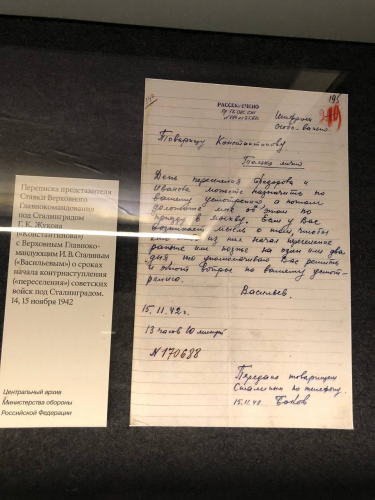 195
РАССЕКРЕЧЕНО
Шифром
особо важно
Товарищу Константинову
Только лично
День переселения Федорова и
Иванова можете назначить по
вашему усмотрению, а потом
доложите мне об этом по
приезде в Москву. Если у Вас
возникает мысль о том, чтобы
кто из них начал переселение
раньше или позже на один или два
дня то уполномочиваю Вас решить
и этот вопрос по вашему усмот-
рению.
Васильев
15.11.42 г.
13 часов 10 минут
№ 170688
Передано товарищем
Сталиным по телефону.
Боков
Переписка представителя
Ставки Верховного
Главнокомандования
под Сталинградом
Г. К. Жукова
(«Константинова»)
с Верховным Главноко-
мандующим И. В. Сталиным
(«Васильевым») о сроках
начала контрнаступления
(«переселения») советских
войск под Сталинградом.
14, 15 ноября 1942
Центральный архив
Министерства обороны
Российской Федерации